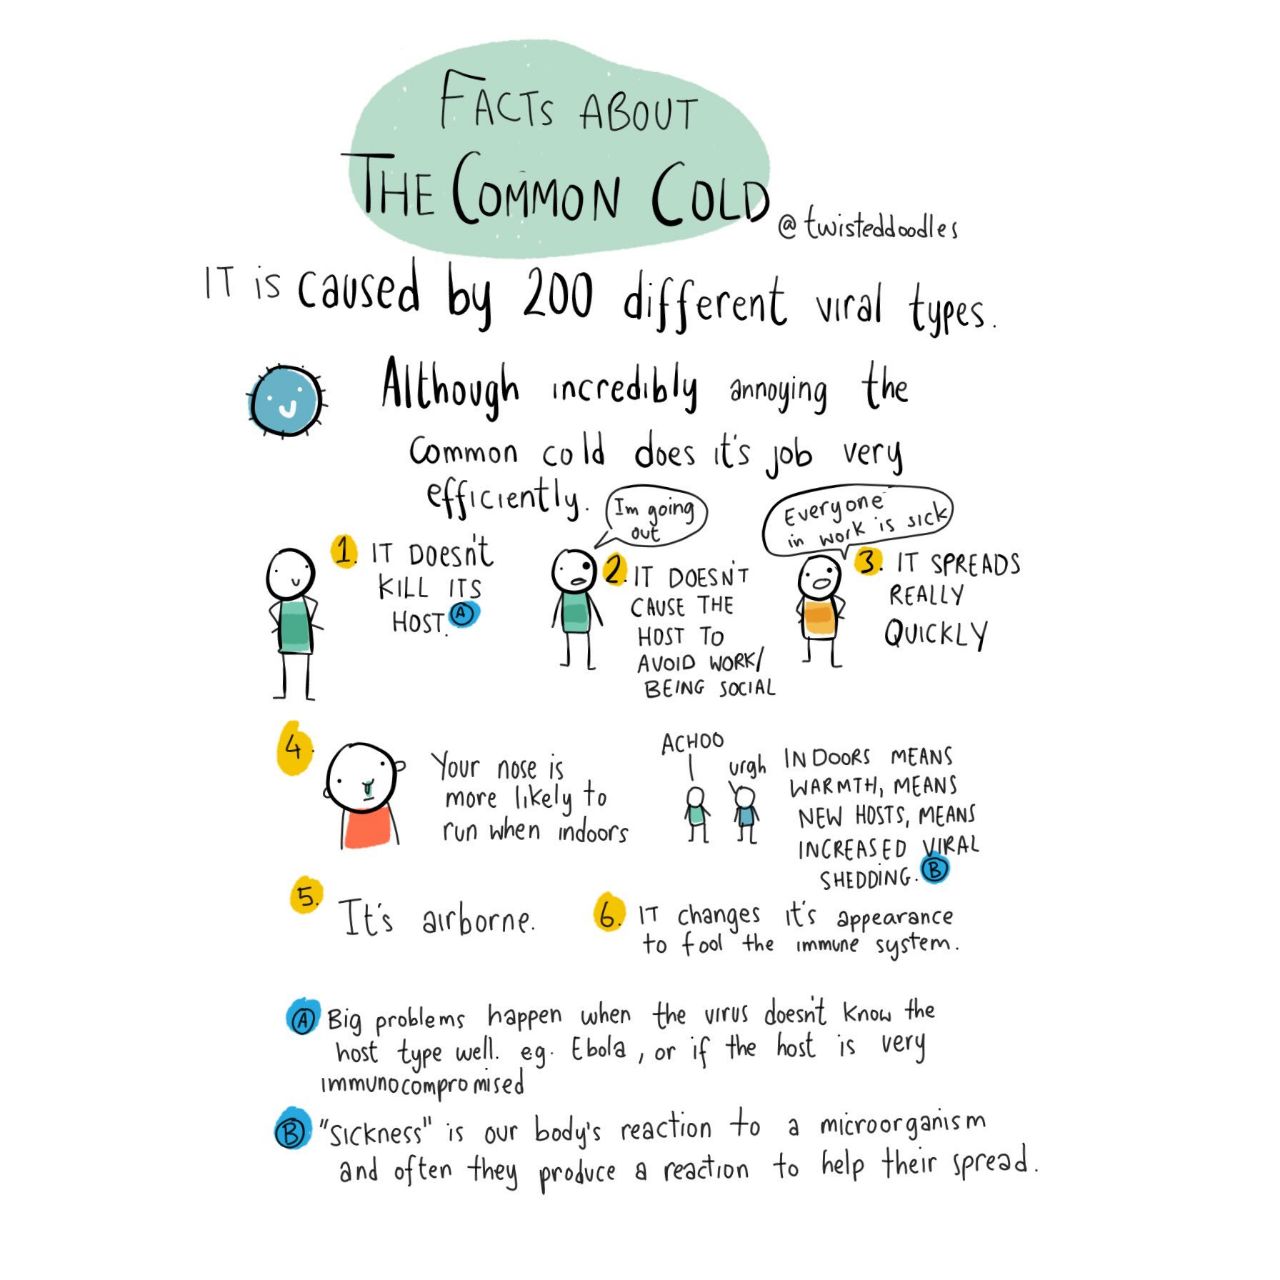 FACTS ABOUT
THE COMMON COLD
@twisteddoodles
IT is caused by 200 different viral types.
Although incredibly annoying the
common cold does it's job very
efficiently.
I'm going
out
Everyone
in work is sick
1. IT DOESN'T
KILL ITS
HOST. A
2. IT DOESN'T
CAUSE THE
HOST TO
AVOID WORK/
BEING SOCIAL
3. IT SPREADS
REALLY
QUICKLY
4.
Your nose is
more likely to
run when indoors
ACHOO
urgh
INDOORS MEANS
WARMTH, MEANS
NEW HOSTS, MEANS
INCREASED VIRAL
SHEDDING. B
5. It's airborne.
6. IT changes it's appearance
to fool the immune system.
A Big problems happen when the virus doesn't know the
host type well. eg. Ebola, or if the host is very
immunocompromised
B "Sickness" is our body's reaction to a microorganism
and often they produce a reaction to help their spread.